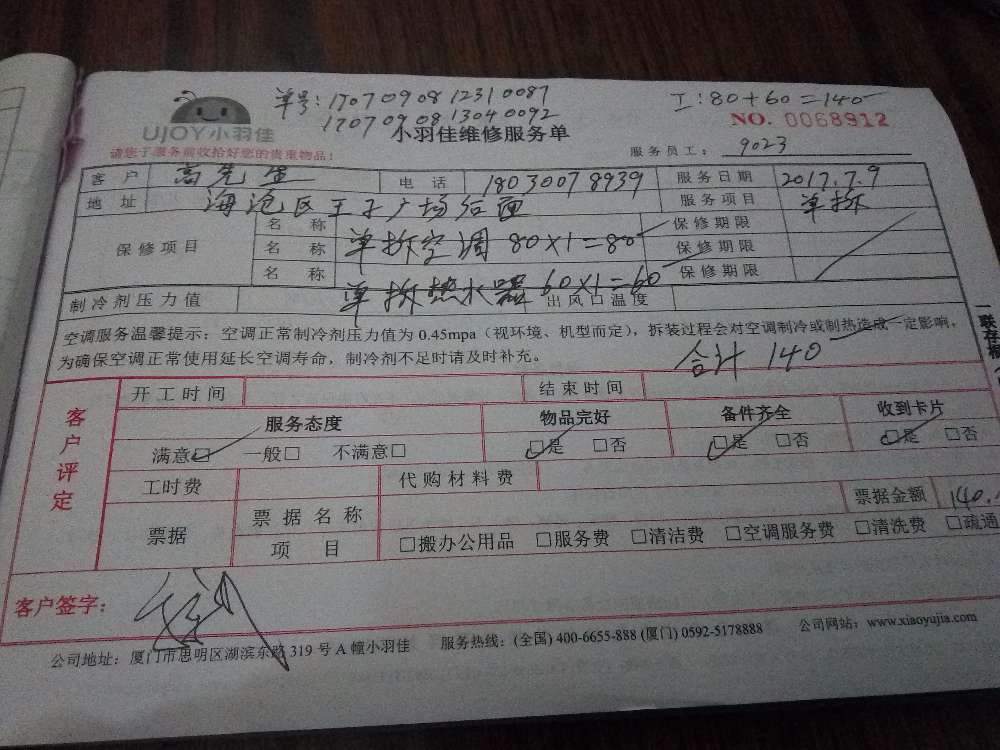 单号: 1707090812310087
1707090813040092
工: 80+60=140
UJOY小羽佳
小羽佳维修服务单
NO. 0068912
请您于服务前收拾好您的贵重物品!
服务员工: 9023
客户 高先生 电话 18030078939 服务日期 2017.7.9
地址 海沧区王子广场后面 服务项目 单拆
保修项目 名称 单拆空调 80×1=80 保修期限
名称 保修期限
名称 单拆热水器 60×1=60 保修期限
制冷剂压力值 出风口温度
空调服务温馨提示: 空调正常制冷剂压力值为 0.45mpa (视环境、机型而定), 拆装过程会对空调制冷或制热造成一定影响,
为确保空调正常使用延长空调寿命, 制冷剂不足时请及时补充。
合计 140
一联存根
客户评定
开工时间 结束时间
服务态度 物品完好 备件齐全 收到卡片
满意□ 一般□ 不满意□ □是 □否 □是 □否 □是 □否
工时费 代购材料费
票据 票据名称 票据金额 140.
项目 □搬办公用品 □服务费 □清洁费 □空调服务费 □清洗费 □疏通
客户签字:
公司地址: 厦门市思明区湖滨东路 319 号 A 幢小羽佳 服务热线: (全国) 400-6655-888 (厦门) 0592-5178888 公司网站: www.xiaoyujia.com